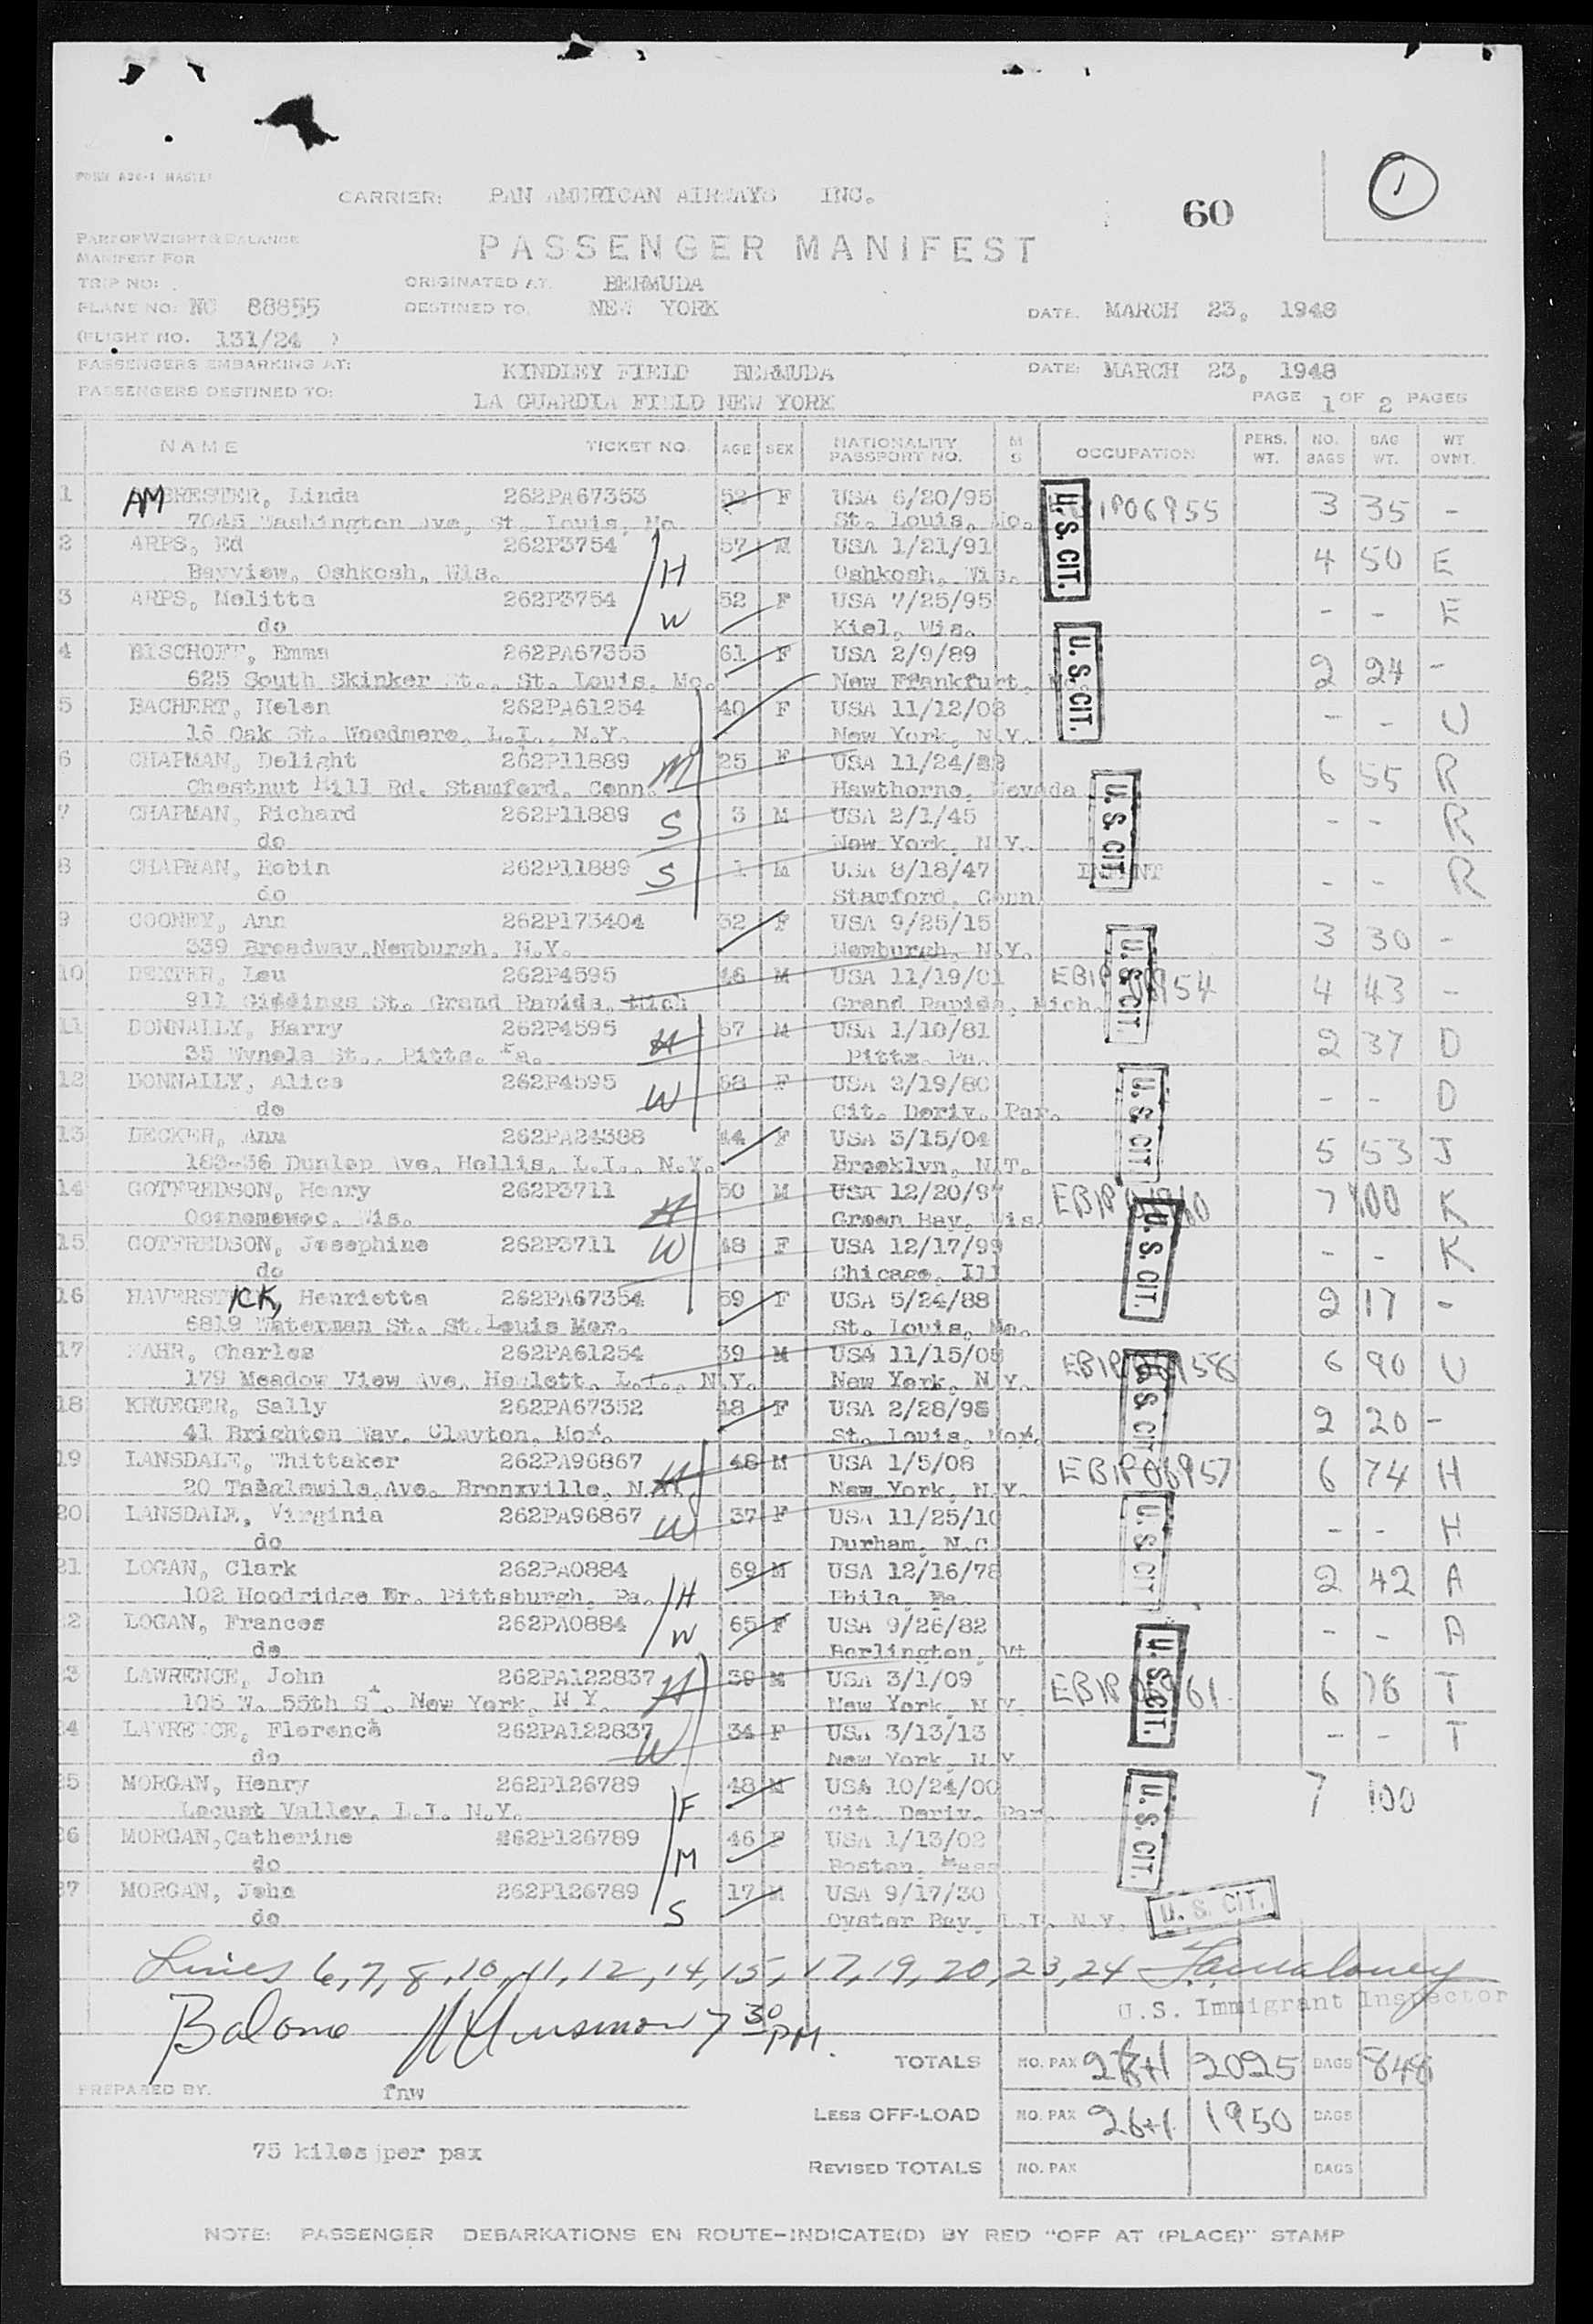 FORM 626-1 MASTER
CARRIER: PAN AMERICAN AIRWAYS INC.
60
1
PART OF WEIGHT & BALANCE
MANIFEST FOR
PASSENGER MANIFEST
TRIP NO:
ORIGINATED AT. BERMUDA
PLANE NO: NC 88855
DESTINED TO. NEW YORK
DATE. MARCH 23, 1948
(FLIGHT NO. 131/24 )
PASSENGERS EMBARKING AT: KINDLEY FIELD BERMUDA DATE: MARCH 23, 1948
PASSENGERS DESTINED TO: LA GUARDIA FIELD NEW YORK PAGE 1 OF 2 PAGES
NAME TICKET NO. AGE SEX NATIONALITY PASSPORT NO. M S OCCUPATION PERS. WT. NO. BAGS BAG WT. WT OVNT.
1 AMBRESTER, Linda 262PA67353 52 F USA 6/20/95 1P06955 3 35 -
7045 Washington Ave, St. Louis, Mo. St. Louis, Mo.
2 ARPS, Ed 262P3754 57 M USA 1/21/91 4 50 E
Bayview, Oshkosh, Wis. H Oshkosh, Wis.
3 ARPS, Melitta 262P3754 52 F USA 7/25/95 - - E
do W Kiel, Wis.
4 BISCHOFF, Emma 262PA67355 61 F USA 2/9/89 2 24 -
625 South Skinker St., St. Louis, Mo. New Frankfurt,
5 BACHERT, Helen 262PA61254 40 F USA 11/12/08 - - U
16 Oak St. Woodmere, L.I., N.Y. New York, N.Y.
6 CHAPMAN, Delight 262P11889 M 25 F USA 11/24/ 6 55 R
Chestnut Hill Rd. Stamford, Conn. Hawthorne, Nevada
7 CHAPMAN, Richard 262P11889 S 3 M USA 2/1/45 - - R
do New York, N.Y.
8 CHAPMAN, Robin 262P11889 S 1 M USA 8/18/47 INFANT - - R
do Stamford, Conn
9 COONEY, Ann 262P173404 32 F USA 9/25/15 3 30 -
339 Broadway, Newburgh, N.Y. Newburgh, N.Y.
10 DEXTER, Leu 262P4595 46 M USA 11/19/01 4 43 -
911 Giddings St. Grand Rapids, Mich Grand Rapids, Mich.
11 DONNALLY, Harry 262P4595 H 67 M USA 1/10/81 2 37 D
35 Wynola St., Pitts. Pa. Pitts. Pa.
12 DONNALLY, Alice 262P4595 W 68 F USA 2/19/80 - - D
do Cit. Deriv. Par.
13 DECKER, Ann 262PA24388 44 F USA 3/15/04 5 53 J
183-36 Dunlop Ave, Hollis, L.I., N.Y. Brooklyn, N.Y.
14 GOTFREDSON, Henry 262P3711 H 50 M USA 12/20/97 7 100 K
Oconomowoc, Wis. Green Bay, Wis.
15 GOTFREDSON, Josephine 262P3711 W 48 F USA 12/17/99 - - K
do Chicago, Ill
16 HAVERSTICK, Henrietta 262PA67354 59 F USA 5/24/88 2 17 -
6819 Waterman St. St. Louis Mor. St. Louis, Mo.
17 KAHR, Charles 262PA61254 39 M USA 11/15/08 6 90 U
179 Meadow View Ave, Hewlett, L.I., N.Y. New York, N.Y.
18 KRUEGER, Sally 262PA67352 48 F USA 2/28/98 2 20 -
41 Brighton Way, Clayton, Mor. St. Louis, Mor.
19 LANSDALE, Whittaker 262PA96867 H 48 M USA 1/5/08 EB1P06957 6 74 H
20 Ave. Bronxville, N.Y. New York, N.Y.
20 LANSDALE, Virginia 262PA96867 W 37 F USA 11/25/10 - - H
do Durham, N.C
21 LOGAN, Clark 262PA0884 69 M USA 12/16/78 2 42 A
102 Hoodridge Dr. Pittsburgh, Pa. H Phila, Pa.
22 LOGAN, Frances 262PA0884 W 65 F USA 9/26/82 - - A
do Berlington, Vt
23 LAWRENCE, John 262PA122837 H 39 M USA 3/1/09 6 78 T
105 W. 55th St. New York, N.Y. New York, N.Y.
24 LAWRENCE, Florence 262PA122837 W 34 F USA 3/13/13 - - T
do New York, N.Y
25 MORGAN, Henry 262P126789 48 M USA 10/24/00 7 100
Locust Valley, L.I. N.Y. F Cit. Deriv. Par.
26 MORGAN, Catherine 262P126789 46 F USA 1/13/02
do M Boston, Mass
27 MORGAN, John 262P126789 17 M USA 9/17/30
do S Oyster Bay, L.I. N.Y.
U.S. CIT.
U.S. CIT.
U.S. CIT.
U.S. CIT.
U.S. CIT.
U.S. CIT.
U.S. CIT.
U.S. CIT.
U.S. CIT.
U.S. CIT.
U.S. CIT.
Lines 6,7,8,10,11,12,14,15,17,19,20,23,24
U.S. Immigrant Inspector
Balance 7 30 PM.
TOTALS NO. PAX 2025 BAGS 848
PREPARED BY. fnw
LESS OFF-LOAD NO. PAX 26+1 1950 BAGS
75 kilos per pax
REVISED TOTALS NO. PAX BAGS
NOTE: PASSENGER DEBARKATIONS EN ROUTE-INDICATE(D) BY RED "OFF AT (PLACE)" STAMP